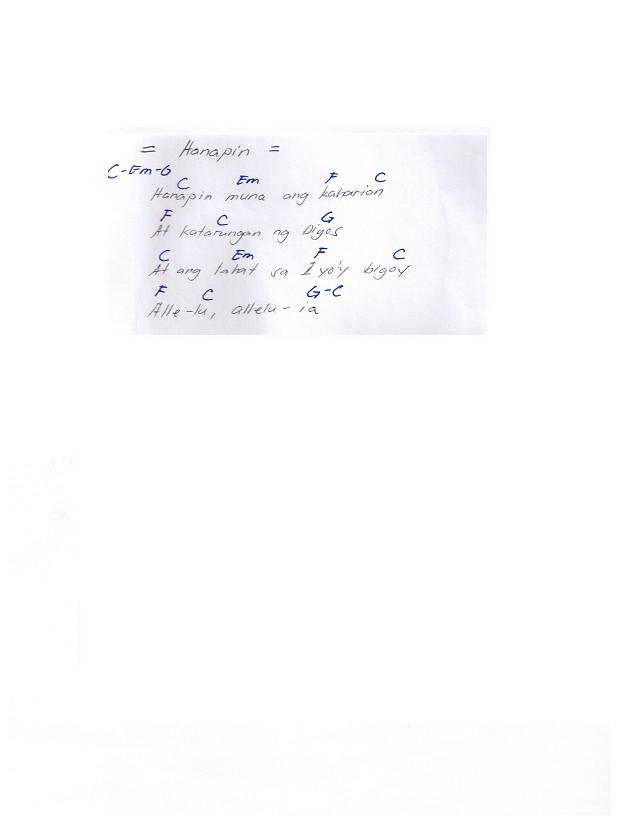 = Hanapin =
C-Em-G
C Em F C
Hanapin muna ang kaharian
F C G
At katarungan ng Diyos
C Em F C
At ang lahat sa Iyo'y bigay
F C G-C
Alle-lu, allelu-ia